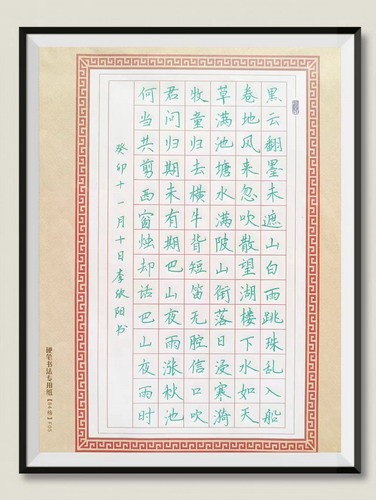 黑云翻墨未遮山白雨跳珠乱入船
卷地风来忽吹散望湖楼下水如天
草满池塘水满陂山衔落日浸寒漪
牧童归去横牛背短笛无腔信口吹
君问归期未有期巴山夜雨涨秋池
何当共剪西窗烛却话巴山夜雨时
癸卯十一月十日李欣阳书
硬笔书法专用纸